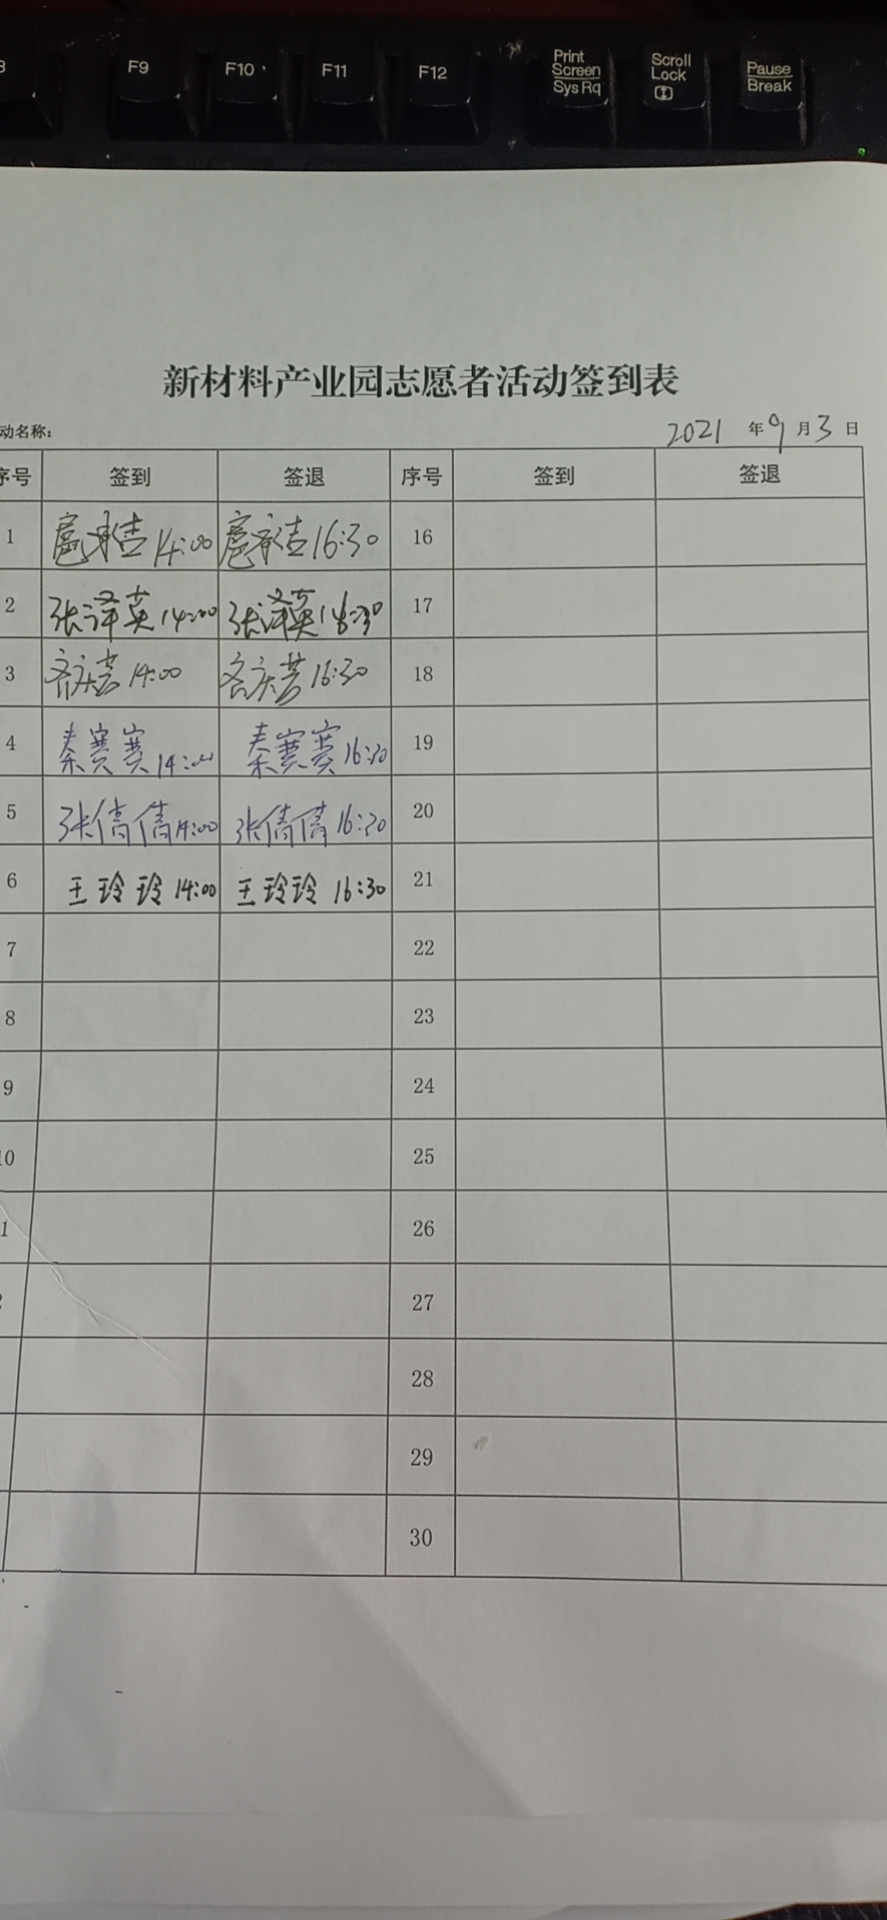 F9 F10 F11 F12 Print Screen Sys Rq Scroll Lock Pause Break
新材料产业园志愿者活动签到表
动名称: 2021 年 9 月 3 日
序号 签到 签退 序号 签到 签退
1 14:00 16:30 16
2 张泽英 14:00 张泽英 16:30 17
3 齐庆芸 14:00 齐庆芸 16:30 18
4 秦赛赛 14:00 秦赛赛 16:30 19
5 张倩倩 14:00 张倩倩 16:30 20
6 王玲玲 14:00 王玲玲 16:30 21
7 22
8 23
9 24
10 25
26
27
28
29
30